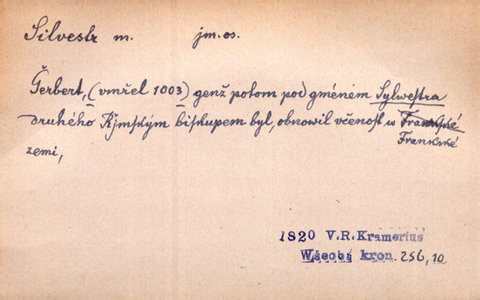 Silvestr m. jm. os.
Ğerbert, (vmřel 1003) genž potom pod gménem Sylwestra
druhého Ržjmſkým biſkupem byl, obnowil včenoſt w
Frankſké
zemi,
1820 V.R.Kramerius
Wšeobá kron. 256, 10.